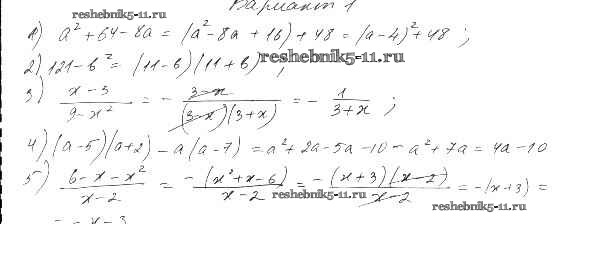 Вариант 1
reshebnik5-11.ru
1) a² + 64 - 8a = (a² - 8a + 16) + 48 = (a - 4)² + 48 ;
2) 121 - b² = (11 - b)(11 + b) ;
reshebnik5-11.ru
3) (x - 3)/(9 - x²) = - (3 - x)/((3 - x)(3 + x)) = - 1/(3 + x) ;
4) (a - 5)(a + 2) - a(a - 7) = a² + 2a - 5a - 10 - a² + 7a = 4a - 10
5) (6 - x - x²)/(x - 2) = -(x² + x - 6)/(x - 2) = -(x + 3)(x - 2)/(x - 2) = -(x + 3) =
reshebnik5-11.ru
reshebnik5-11.ru
= - x - 3